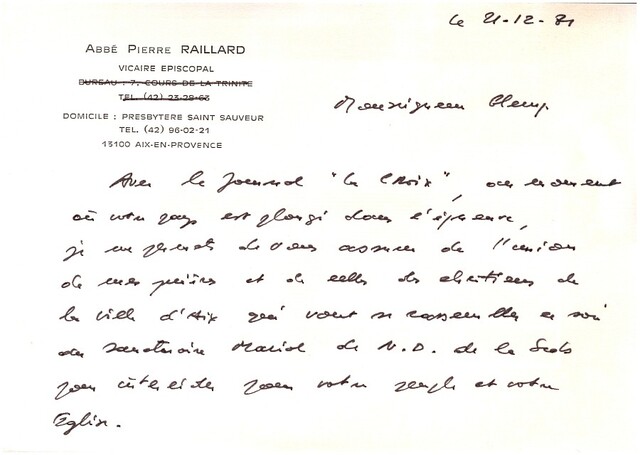 le 21-12-81
ABBÉ PIERRE RAILLARD
VICAIRE EPISCOPAL
BUREAU : 7, COURS DE LA TRINITE
TEL. (42) 23-28-63
DOMICILE : PRESBYTERE SAINT SAUVEUR
TEL. (42) 96-02-21
13100 AIX-EN-PROVENCE
Monseigneur Glemp.
Avec le journal "la CROIX", au moment
où votre pays est plongé dans l'épreuve,
je me permets de vous assurer de l'union
de mes prières et de celles des chrétiens de
la ville d'Aix qui vont se rassembler ce soir
au sanctuaire Marial de N.D. de la Seds
pour intercéder pour votre peuple et votre
Eglise.